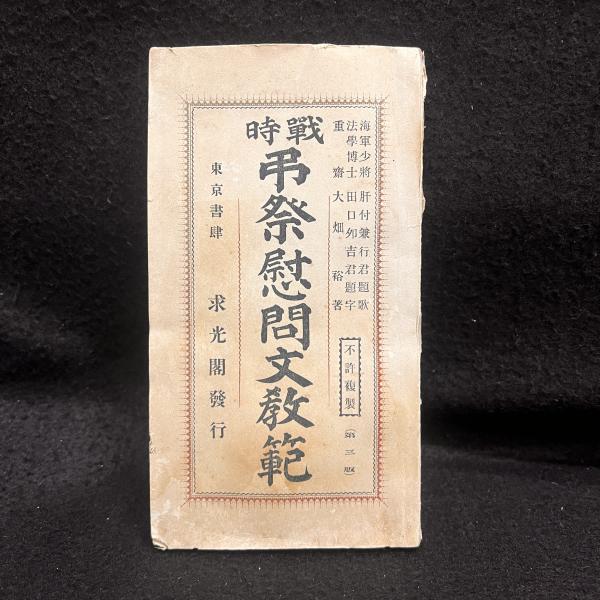 海軍少將 肝付兼行君題歌
法學博士 田口卯吉君題字
重齋 大畑裕著
不許複製
(第三版)
戰時
弔祭慰問文教範
東京書肆 求光閣發行